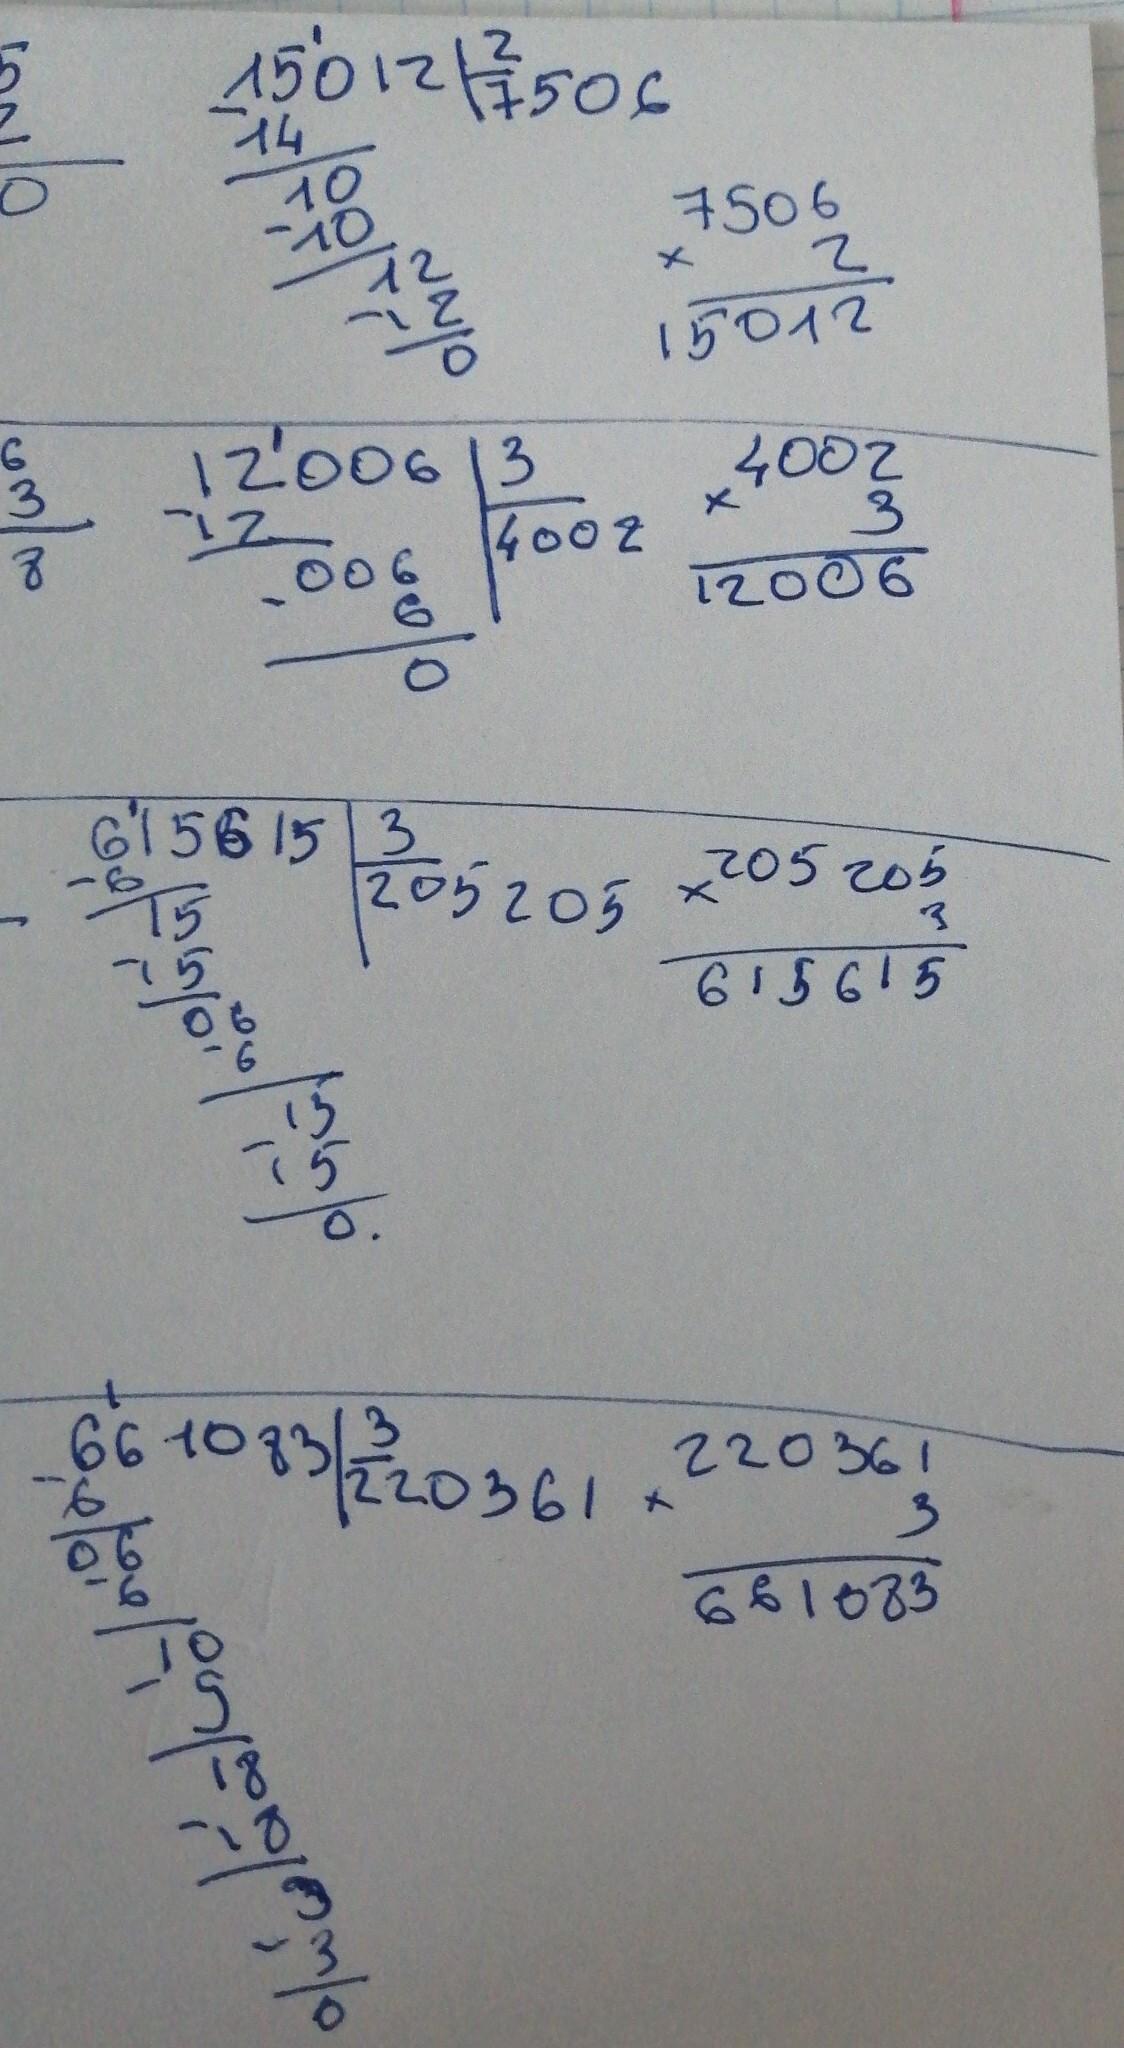 5 15'012 | 2
2 -14 7506
0 10
-10 7506
12 × 2
-12 15012
0
6 12'006 | 3 4002
3 -12 4002 × 3
8 006 12006
- 6
0
6'15615 | 3 205 205
-6 205 205 × 3
15 615615
-15
06
-6
15
-15
0.
6'61083 | 3 220361
-6 220361 × 3
06 661083
-6
10
- 5
18
-18
3
-3
0